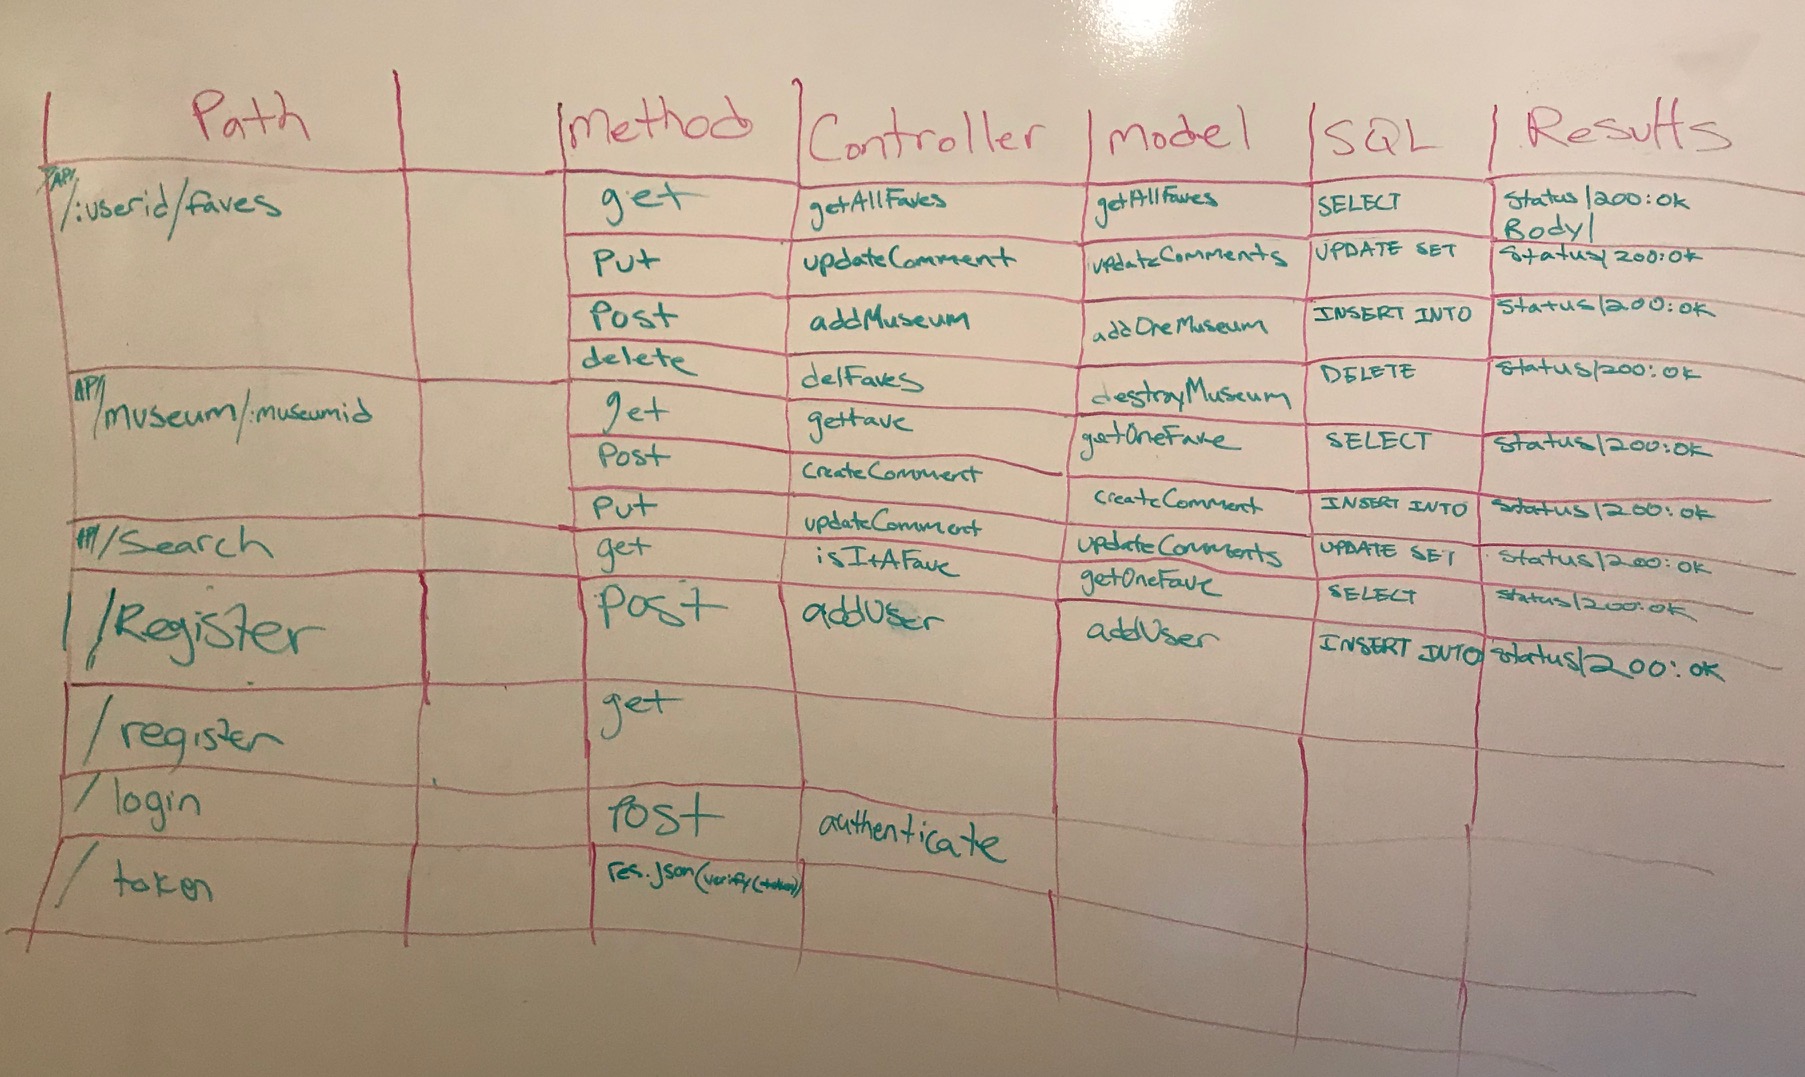 Path Method Controller Model SQL Results
API/
/:userid/faves get getAllFaves getAllFaves SELECT Status/200:ok
Body/
Put updateComment updateComments UPDATE SET Status/200:ok
Post addMuseum addOneMuseum INSERT INTO Status/200:ok
delete delFaves destroyMuseum DELETE Status/200:ok
API/
/museum/:museumid get getFave getOneFave SELECT Status/200:ok
Post createComment createComment INSERT INTO Status/200:ok
Put updateComment updateComments UPDATE SET Status/200:ok
API/Search get isItAFave getOneFave SELECT Status/200:ok
/Register Post addUser addUser INSERT INTO Status/200:ok
/register get
/login Post authenticate
/token res.json(verify(token))